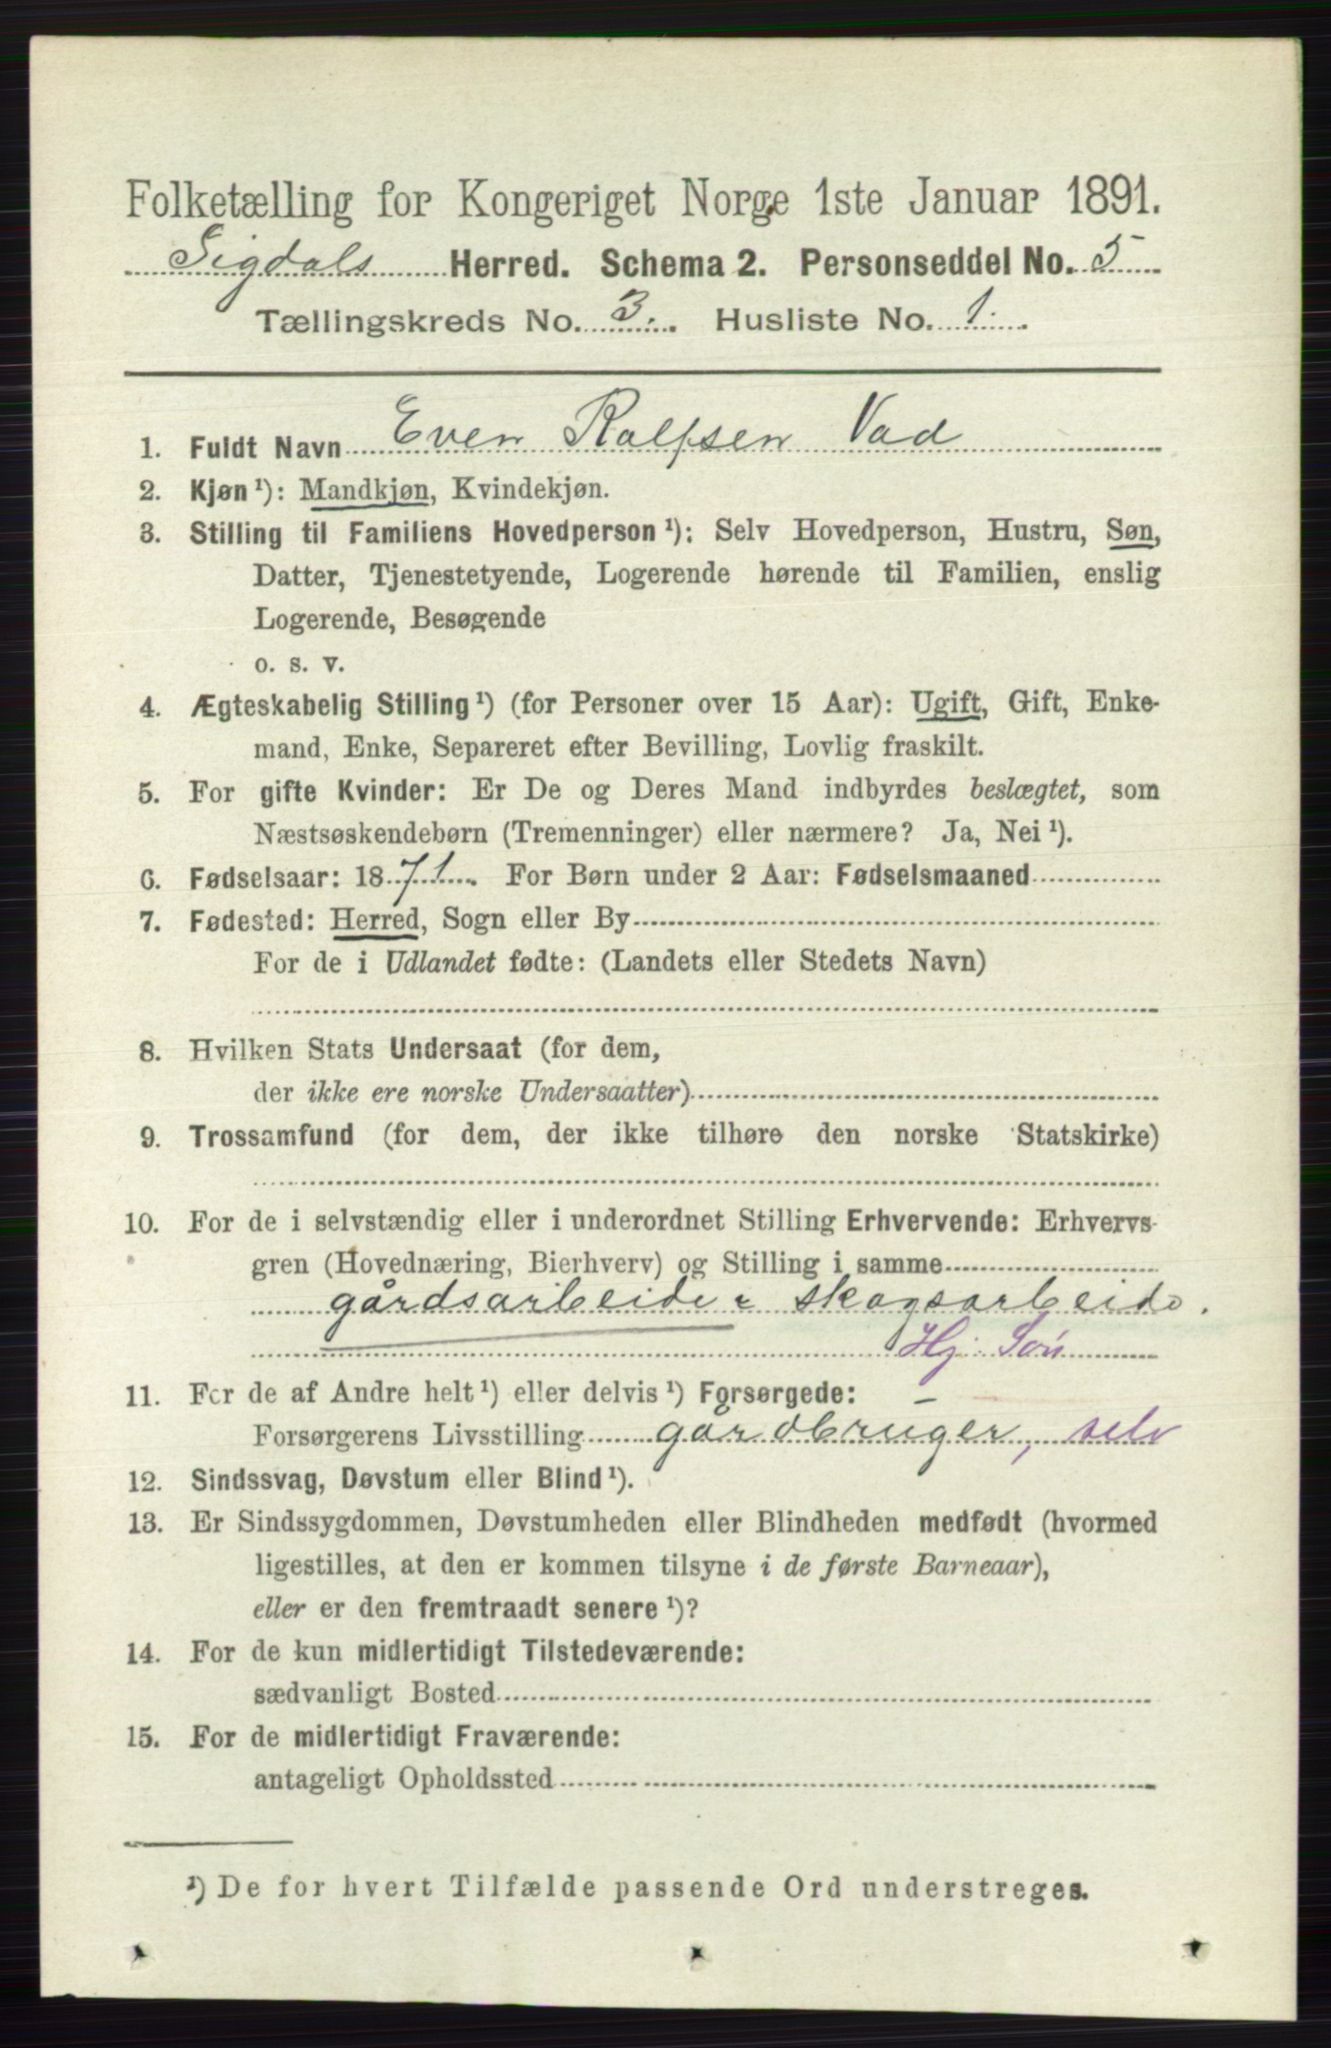 Folketælling for Kongeriget Norge 1ste Januar 1891.
Sigdals Herred. Schema 2. Personseddel No. 5
Tællingskreds No. 3. Husliste No. 1.
1. Fuldt Navn Even Rolfsen Vad
2. Kjøn¹): Mandkjøn, Kvindekjøn.
3. Stilling til Familiens Hovedperson¹): Selv Hovedperson, Hustru, Søn,
Datter, Tjenestetyende, Logerende hørende til Familien, enslig
Logerende, Besøgende
o. s. v.
4. Ægteskabelig Stilling¹) (for Personer over 15 Aar): Ugift, Gift, Enke-
mand, Enke, Separeret efter Bevilling, Lovlig fraskilt.
5. For gifte Kvinder: Er De og Deres Mand indbyrdes beslægtet, som
Næstsøskendebørn (Tremenninger) eller nærmere? Ja, Nei¹).
6. Fødselsaar: 1871. For Børn under 2 Aar: Fødselsmaaned
7. Fødested: Herred, Sogn eller By
For de i Udlandet fødte: (Landets eller Stedets Navn)
8. Hvilken Stats Undersaat (for dem,
der ikke ere norske Undersaatter)
9. Trossamfund (for dem, der ikke tilhøre den norske Statskirke)
10. For de i selvstændig eller i underordnet Stilling Erhvervende: Erhvervs-
gren (Hovednæring, Bierhverv) og Stilling i samme
gårdsarbeide & skogsarbeide.
Hj. Søn
11. For de af Andre helt¹) eller delvis¹) Forsørgede: –
Forsørgerens Livsstilling gårdbruger, selv
12. Sindssvag, Døvstum eller Blind¹).
13. Er Sindssygdommen, Døvstumheden eller Blindheden medfødt (hvormed
ligestilles, at den er kommen tilsyne i de første Barneaar),
eller er den fremtraadt senere¹)?
14. For de kun midlertidigt Tilstedeværende:
sædvanligt Bosted
15. For de midlertidigt Fraværende:
antageligt Opholdssted
¹) De for hvert Tilfælde passende Ord understreges.